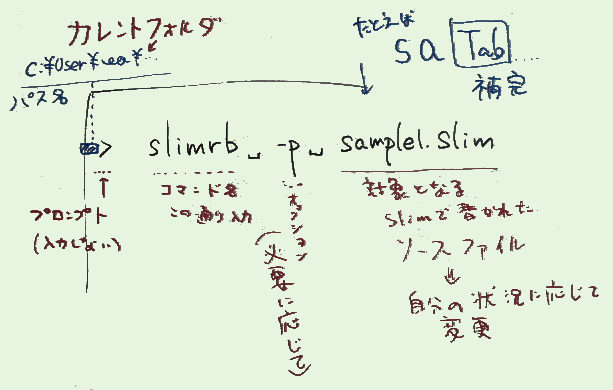 カレントフォルダ
C:¥User¥rea¥…
パス名
たとえば
sa Tab …
補完
> slimrb␣ -p␣ sample1.slim
プロンプト
(入力しない)
コマンド名
この通り入力
オプション
(必要に応じて)
対象となる
slimで書かれた
ソースファイル
自分の状況に応じて
変更